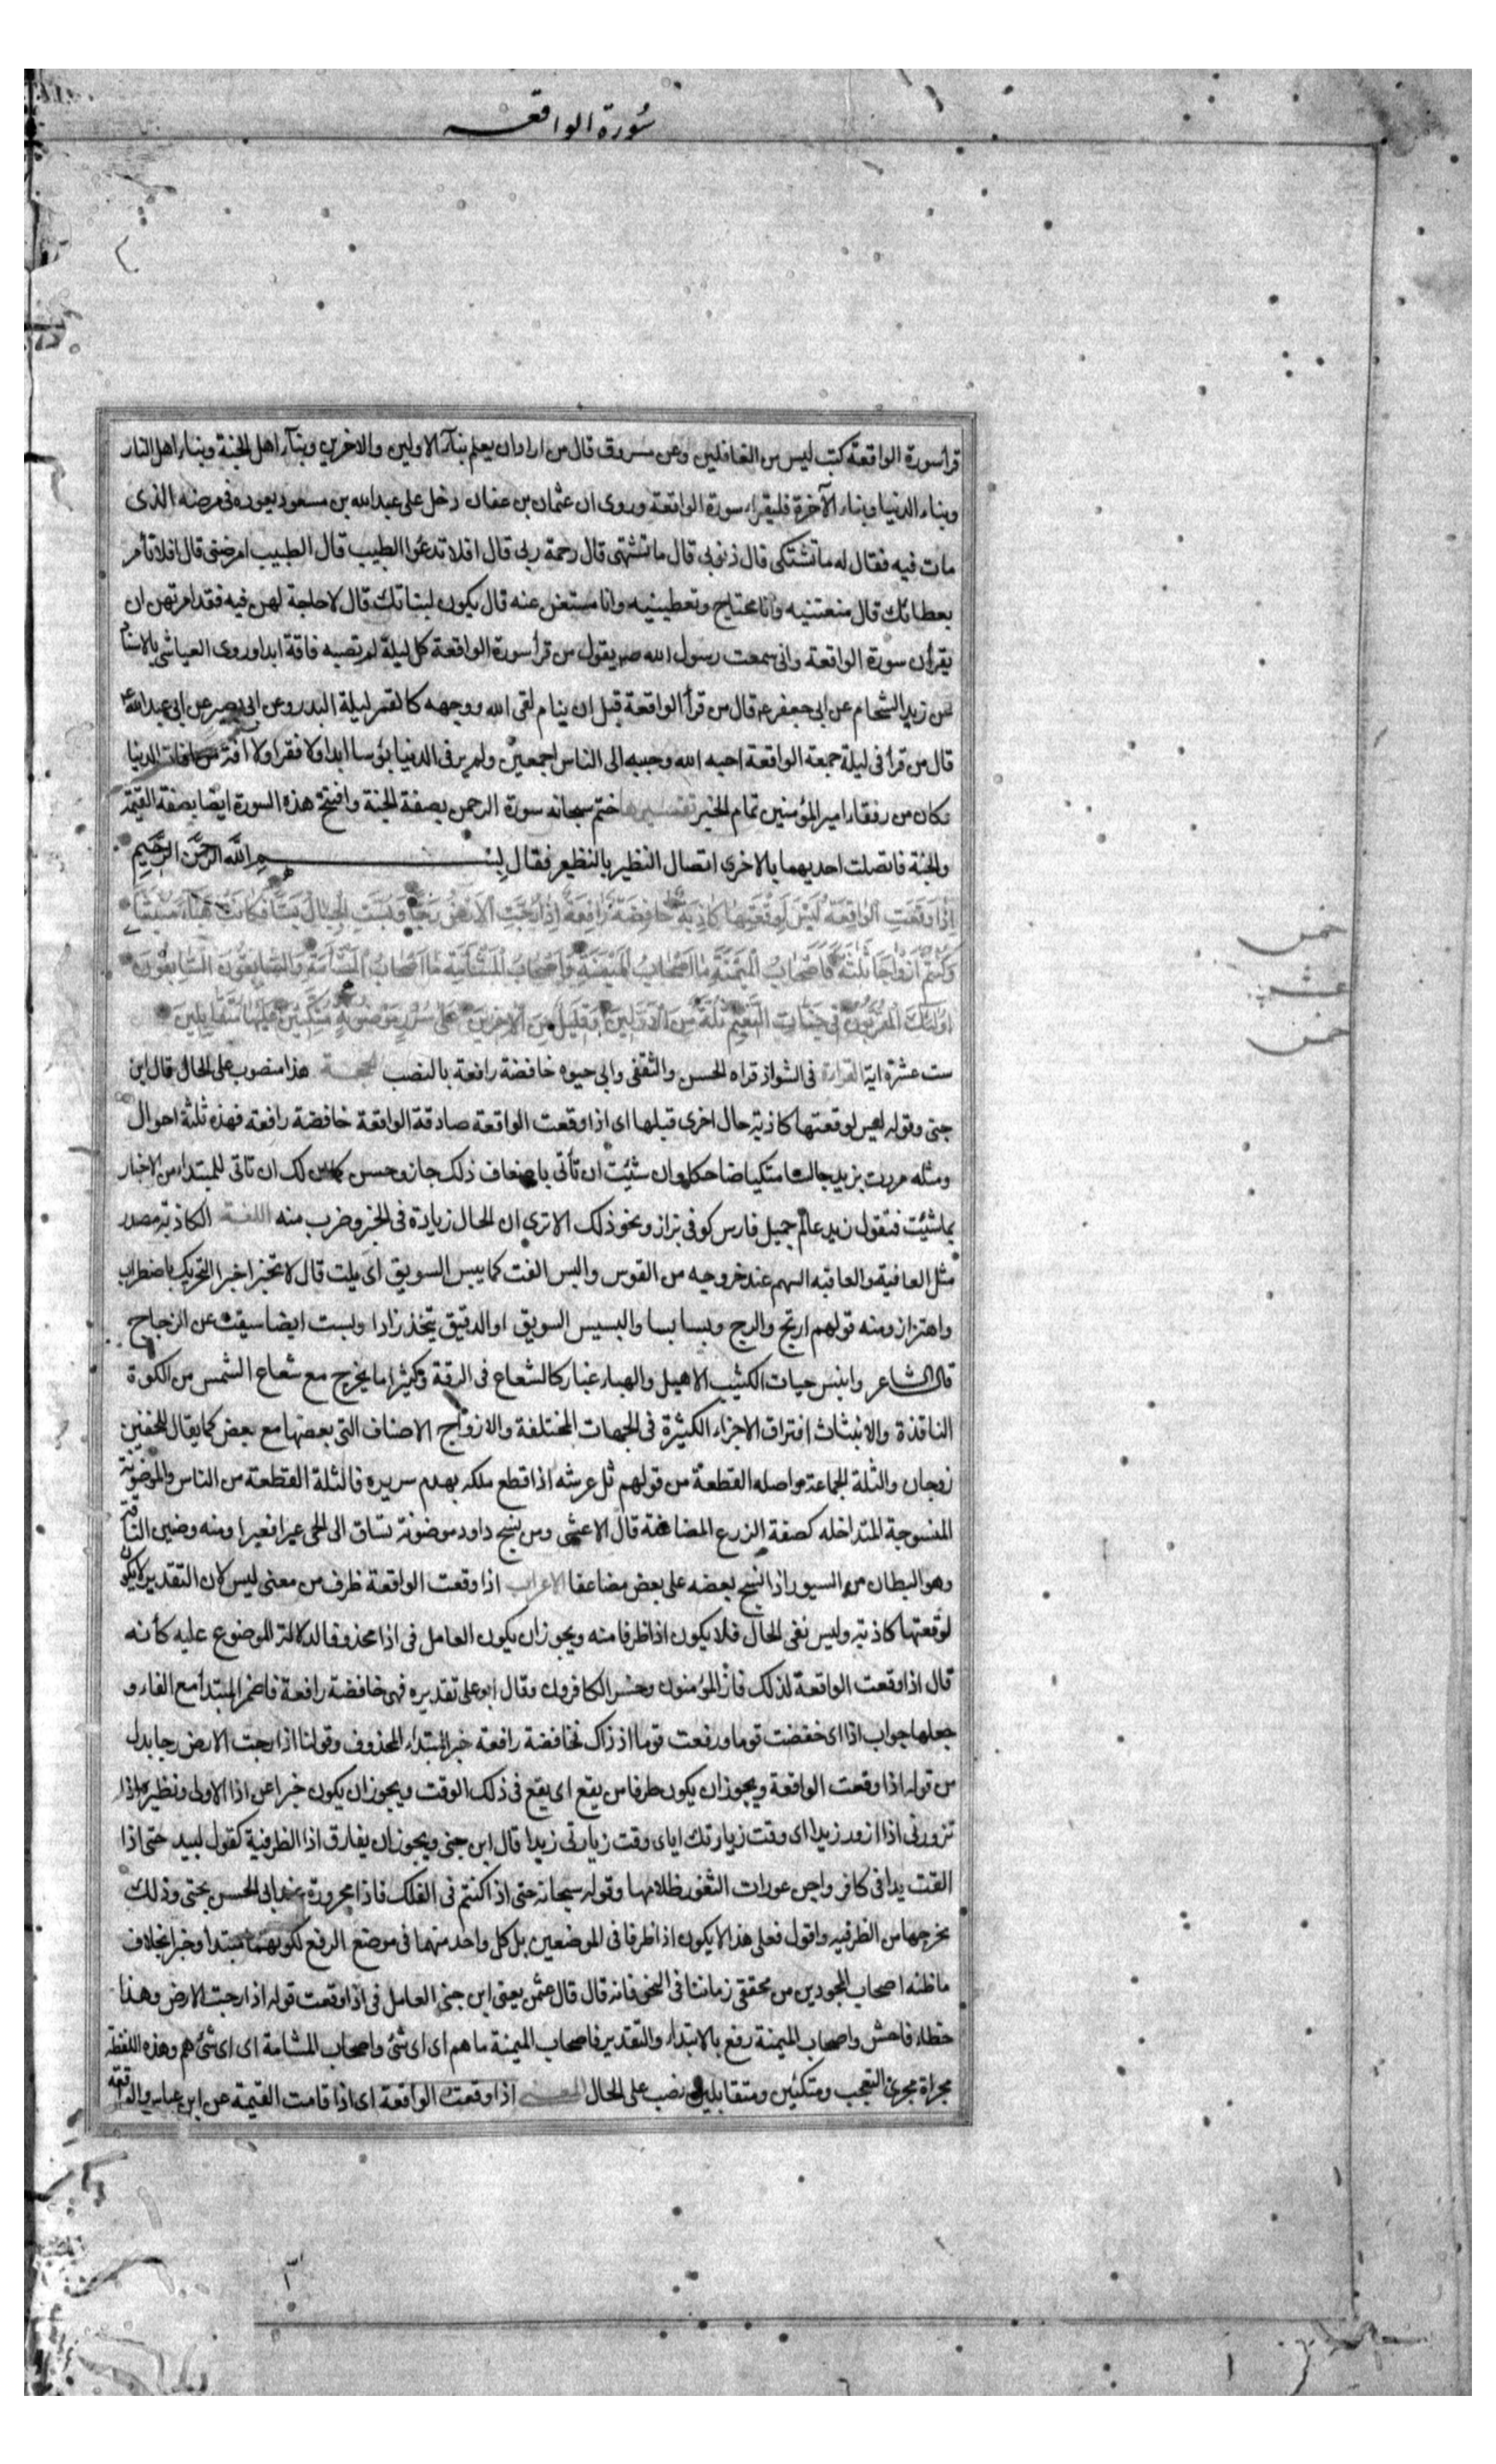 سورة الواقعـــه
قرأ سورة الواقعة كتب ليس من الغافلين وعن مسروق قال من اراد ان يعلم بنأ الاولين والاخرين وبنأ اهل الجنة وبناء اهل النار
وبناء الدنيا وبناء الآخرة فليقراء سورة الواقعة وروى ان عثمان بن عفان دخل على عبد الله بن مسعود يعوده فى مرضه الذى
مات فيه فقال له ما تشتكى قال ذنوبى قال ما تشتهى قال رحمة ربى قال افلا تدعوا الطبيب قال الطبيب امرضنى قال افلا تأمر
بعطائك قال منعتنيه وانا محتاج وتعطينيه وانا مستغن عنه قال يكون لبناتك قال لا حاجة لهن فيه فقد امرتهن ان
يقرأن سورة الواقعة وانى سمعت رسول الله صم يقول من قرأ سورة الواقعة كل ليلة لم تصبه فاقة ابدا وروى العياشى بالاسناد
عن زيد الشحام عن ابى جعفر ع قال من قرأ الواقعة قبل ان ينام لقى الله ووجهه كالقمر ليلة البدر وعن ابى بصير عن ابى عبد الله ع
قال من قرأ فى ليلة جمعة الواقعة احبه الله وحببه الى الناس اجمعين ولم ير فى الدنيا بؤسا ابدا ولا فقرا ولا افة من افات الدنيا
وكان من رفقاء امير المؤمنين تمام الخبر تفسيرها ختم سبحانه سورة الرحمن بصفة الجنة وافتتح هذه السورة ايضا بصفة القيمة
والجنة فاتصلت احديهما بالاخرى اتصال النظير بالنظير فقال بِسْـــمِ اللَّهِ الرَّحْمَنِ الرَّحِيمِ
اِذَا وَقَعَتِ الْوَاقِعَةُ لَيْسَ لِوَقْعَتِهَا كَاذِبَةٌ خَافِضَةٌ رَافِعَةٌ اِذَا رُجَّتِ الْاَرْضُ رَجًّا وَبُسَّتِ الْجِبَالُ بَسًّا فَكَانَتْ هَبَاءً مُنْبَثًّا
وَكُنْتُمْ اَزْوَاجًا ثَلٰثَةً فَاَصْحَابُ الْمَيْمَنَةِ مَا اَصْحَابُ الْمَيْمَنَةِ وَاَصْحَابُ الْمَشْأَمَةِ مَا اَصْحَابُ الْمَشْأَمَةِ وَالسَّابِقُونَ السَّابِقُونَ
اُولٰئِكَ الْمُقَرَّبُونَ فِي جَنَّاتِ النَّعِيمِ ثُلَّةٌ مِنَ الْاَوَّلِينَ وَقَلِيلٌ مِنَ الْاٰخِرِينَ عَلَى سُرُرٍ مَوْضُونَةٍ مُتَّكِئِينَ عَلَيْهَا مُتَقَابِلِينَ
خمس
عشر
خمس
ست عشرة اية القراءة فى الشواذ قراه الحسن والثقفى وابى حيوه خافضة رافعة بالنصب الحجـــة هذا منصوب على الحال قال ابن
جنى وقوله ليس لوقعتها كاذبة حال اخرى قبلها اى اذا وقعت الواقعة صادقة الواقعة خافضة رافعة فهذه ثلثة احوال
ومثله مررت بزيد جالسا متكيا ضاحكا وان شئت ان تأتى باضعاف ذلك جاز وحسن كما لك ان تاتى للمبتداء من الاخبار
بما شئت فتقول زيد عالم جميل فارس كوفى بزاز ونحو ذلك الا ترى ان الحال زيادة فى الخبر وضرب منه اللغـــة الكاذبة مصدر
مثل العافية والعاقبه السهم عند خروجه من القوس والبس الفت كما يبس السويق اى يلت قال لا تخبزا خبزا التحريك باضطراب
واهتزاز ومنه قولهم ارتج والرج وبسا بسا والبسيس السويق او الدقيق يتخذ زادا وبست ايضا سيقت عن الزجاج
قال الشاعر وانبس حيات الكثيب الاهيل والهباء غبار كالشعاع فى الرقة وكثيرا ما يخرج مع شعاع الشمس من الكوة
النافذة والانبثاث افتراق الاجزاء الكثيرة فى الجهات المختلفة والازواج الاصناف التى بعضها مع بعض كما يقال للخفين
زوجان والثلة الجماعة واصله القطعة من قولهم ثل عرشه اذا قطع ملكه بهدم سريره فالثلة القطعة من الناس والموضونة
المنسوجة المتداخله كصفة الزرع المضاعفة قال الاعشى ومن نسج داود موضونة تساق الى الحى عيرا فعيرا ومنه وضين الناقة
وهو البطان من السيور اذا نسج بعضه على بعض مضاعفا الاعراب اذا وقعت الواقعة ظرف من معنى ليس لان التقدير لا يكون
لوقعتها كاذبة وليس نفى الحال فلا يكون اذا ظرفا منه ويجوز ان يكون العامل فى اذا محذوفا لدلالة الموضوع عليه كأنه
قال اذا وقعت الواقعة لذلك فاز المؤمنون وخسر الكافرون وقال ابو على تقديره فهى خافضة رافعة فاضمر المبتدأ مع الفاء و
جعلها جواب اذا اى خفضت قوما ورفعت قوما اذ ذاك فخافضة رافعة خبر المبتداء المحذوف وقولنا اذا رجت الارض رجا بدل
من قوله اذا وقعت الواقعة ويجوز ان يكون ظرفا من يقع اى يقع فى ذلك الوقت ويجوز ان يكون خبرا عن اذا الاولى ونظيره اذا
تزورنى اذا ازور زيدا اى وقت زيارتك اياى وقت زيارتى زيدا قال ابن جنى ويجوز ان يفارق اذا الظرفية كقول لبيد حتى اذا
القت يدا فى كافر واجن عورات الثغور ظلامها وقوله سبحانه حتى اذا كنتم فى الفلك فاذا مجرورة عند ابى الحسن بحتى وذلك
يخرجها من الظرفيه واقول فعلى هذا لا يكون اذا ظرفا فى الموضعين بل كل واحد منهما فى موضع الرفع لكونهما مبتدأ وخبرا بخلاف
ما ظنه اصحاب المجودين من محققى زماننا فى النحو فانه قال قال عثمن يعنى ابن جنى العامل فى اذا وقعت قوله اذا رجت الارض وهذا
خطاء فاحش واصحاب الميمنة رفع بالابتداء والتقدير فاصحاب الميمنة ما هم اى اى شئ واصحاب المشامة اى اى شئ هم وهذه اللفظة
مجراة مجرى التعجب ومتكئين ومتقابلين نصب على الحال المعنـــى اذا وقعت الواقعة اى اذا قامت القيمة عن ابن عباس والواقعة